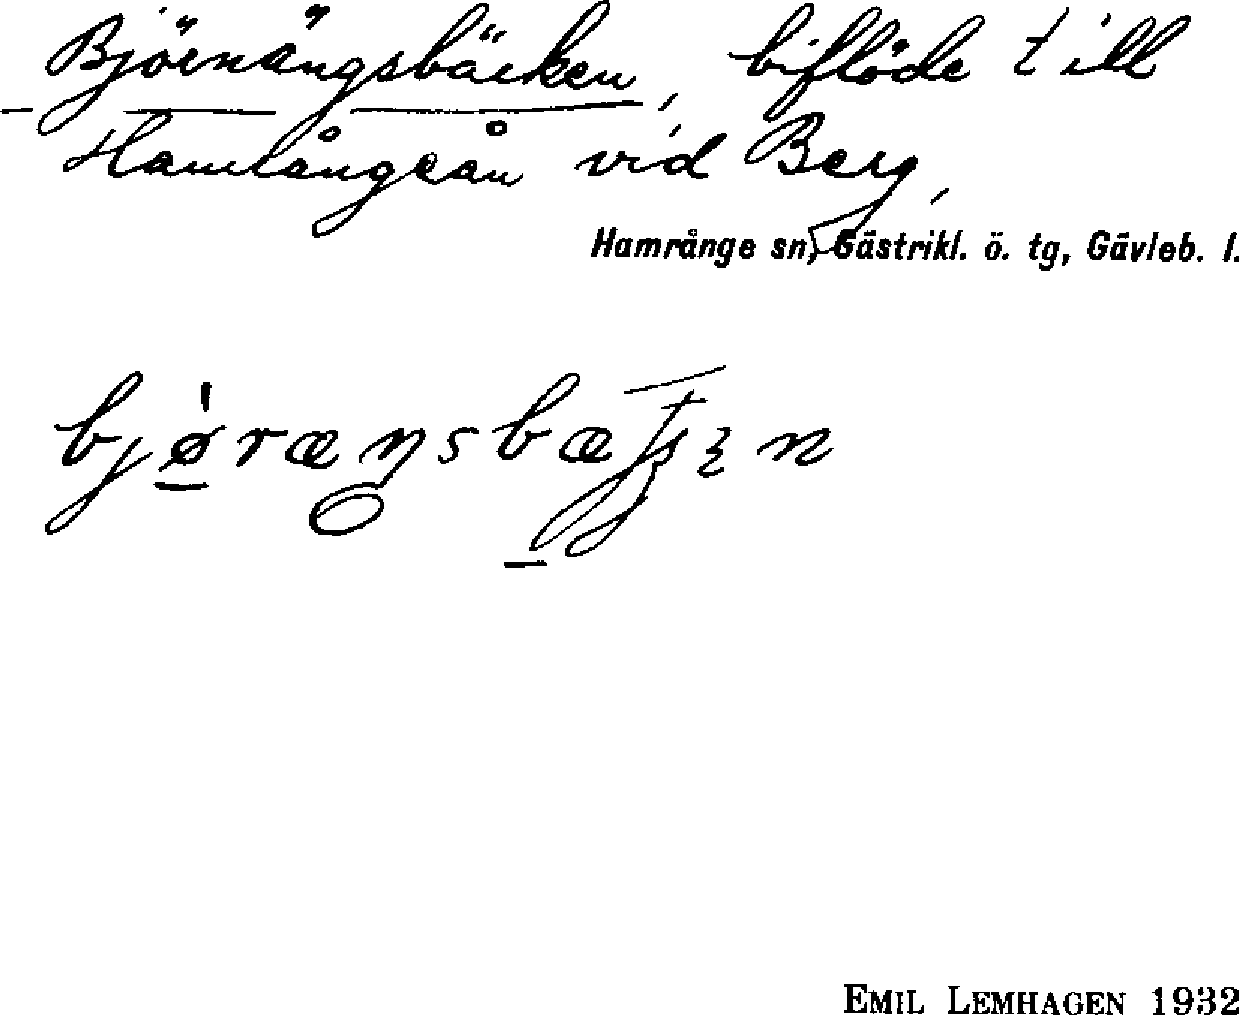 Björnängsbäcken, biflöde till
Hamrångeån vid Berg,
Hamrånge sn, Gästrikl. ö. tg, Gävleb. l.
EMIL LEMHAGEN 1932